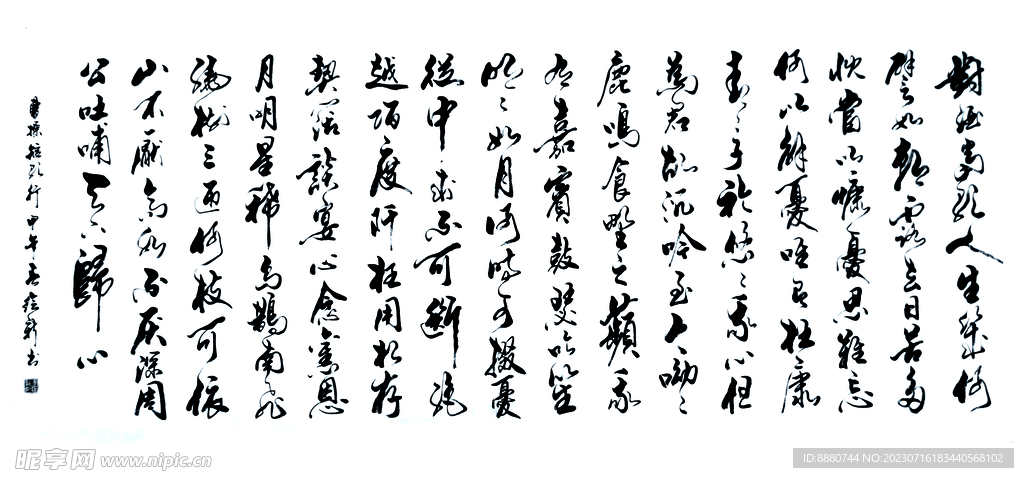 對酒當歌人生幾何
譬如朝露去日苦多
慨當以慷憂思難忘
何以解憂唯有杜康
青々子衿悠々我心但
為君故沉吟至今呦々
鹿鳴食野之蘋我
有嘉賓鼓瑟吹笙
明々如月何時可掇憂
從中來不可斷絕
越陌度阡枉用相存
契闊談宴心念舊恩
月明星稀烏鵲南飛
繞樹三匝何枝可依
山不厭高海不厭深周
公吐哺天下歸心
曹操短歌行甲午春書
昵享网 www.nipic.cn
ID:8880744 NO:20230716183440568102